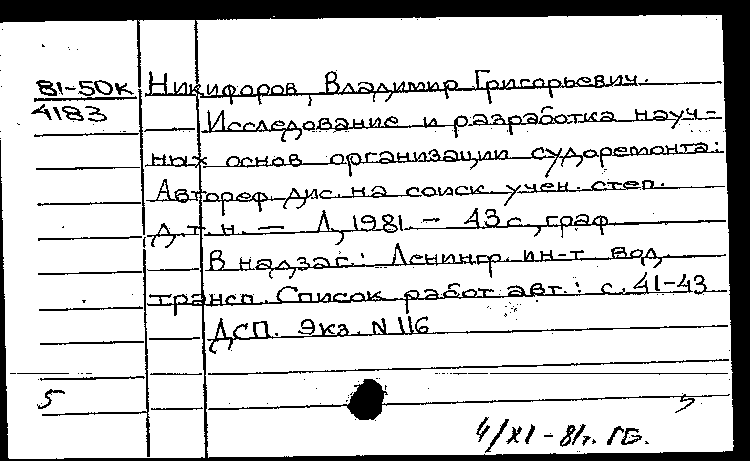 81-50к Никифоров, Владимир Григорьевич.
4183 Исследование и разработка науч-
ных основ организации судоремонта:
Автореф. дис. на соиск. учен. степ.
д.т.н. — Л, 1981. - 43с., граф
В надзаг.: Ленингр. ин-т вод.
трансп. Список работ авт.: с. 41-43
ДСП. Экз. N 116
5
4/XI-81г. ГБ.